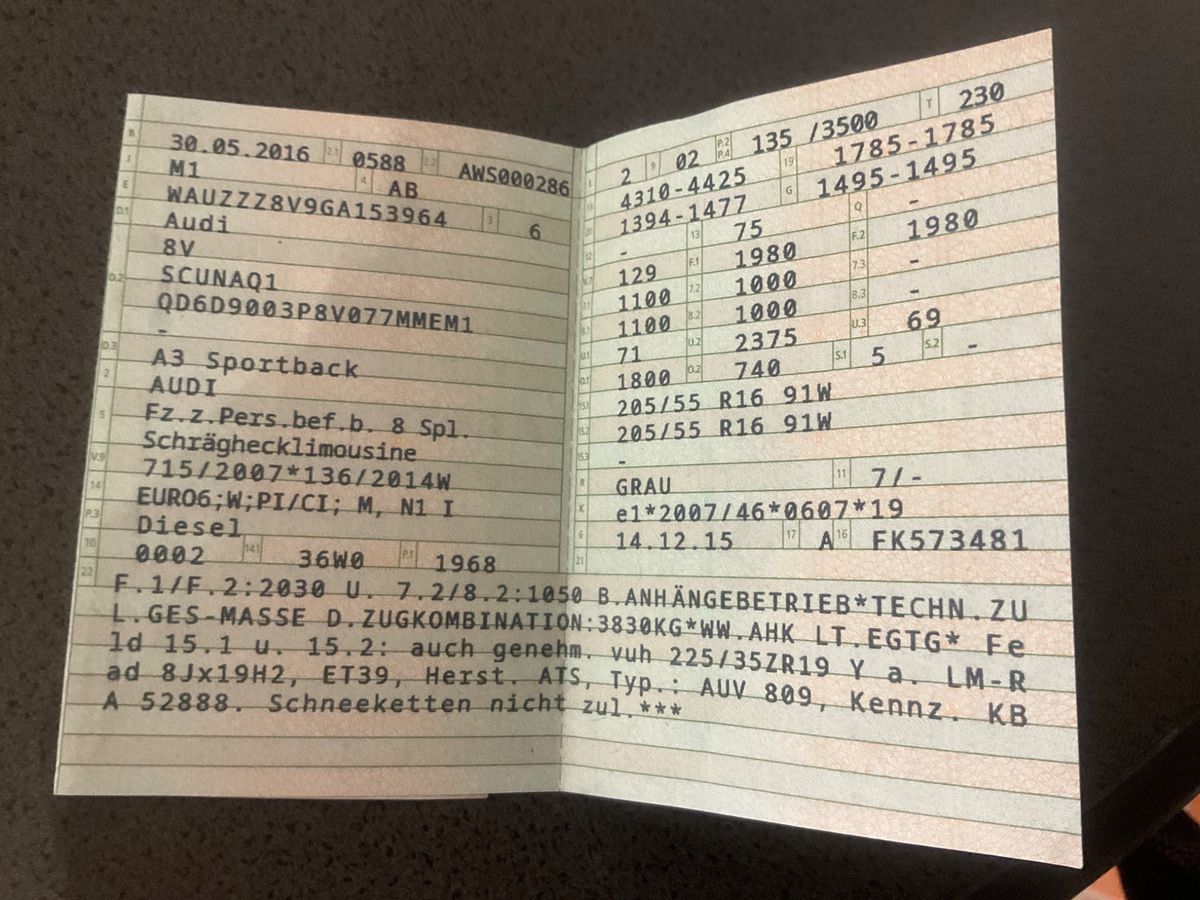 B 30.05.2016 2.1 0588 2.2 AWS000286
J M1 4 AB
E WAUZZZ8V9GA153964 3 6
D.1 Audi
8V
D.2 SCUNAQ1
QD6D9003P8V077MMEM1
-
D.3 A3 Sportback
2 AUDI
5 Fz.z.Pers.bef.b. 8 Spl.
Schräghecklimousine
V.9 715/2007*136/2014W
14 EURO6;W;PI/CI; M, N1 I
P.3 Diesel
10 0002 14.1 36W0 P.1 1968
L 2 9 02 P.2 P.4 135 /3500 T 230
18 4310-4425 19 1785-1785
20 1394-1477 G 1495-1495
12 - 13 75 Q -
V.7 129 F.1 1980 F.2 1980
7.1 1100 7.2 1000 7.3 -
8.1 1100 8.2 1000 8.3 -
U.1 71 U.2 2375 U.3 69
O.1 1800 O.2 740 S.1 5 S.2 -
15.1 205/55 R16 91W
15.2 205/55 R16 91W
15.3 -
R GRAU 11 7/-
K e1*2007/46*0607*19
6 14.12.15 17 A 16 FK573481
21
22 F.1/F.2:2030 U. 7.2/8.2:1050 B.ANHÄNGEBETRIEB*TECHN.ZU
L.GES-MASSE D.ZUGKOMBINATION:3830KG*WW.AHK LT.EGTG* Fe
ld 15.1 u. 15.2: auch genehm. vuh 225/35ZR19 Y a. LM-R
ad 8Jx19H2, ET39, Herst. ATS, Typ.: AUV 809, Kennz. KB
A 52888. Schneeketten nicht zul.***